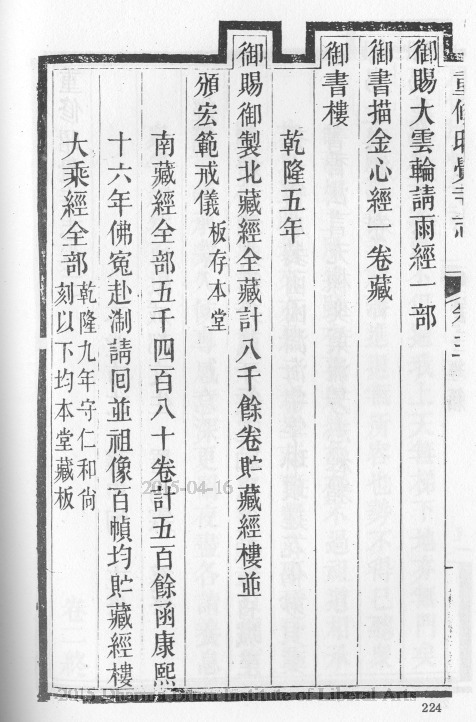 重修昭覺寺志
御賜大雲輪請雨經一部
御書描金心經一卷藏
御書樓
乾隆五年
御賜御製北藏經全藏計八千餘卷貯藏經樓並
頒宏範戒儀 板存本堂
南藏經全部五千四百八十卷計五百餘函康熙
十六年佛寃赴淛請囘並祖像百幀均貯藏經樓
大乘經全部 乾隆九年守仁和尙
刻以下均本堂藏板
2015-04-16
2015 Dharma Drum Institute of Liberal Arts
224